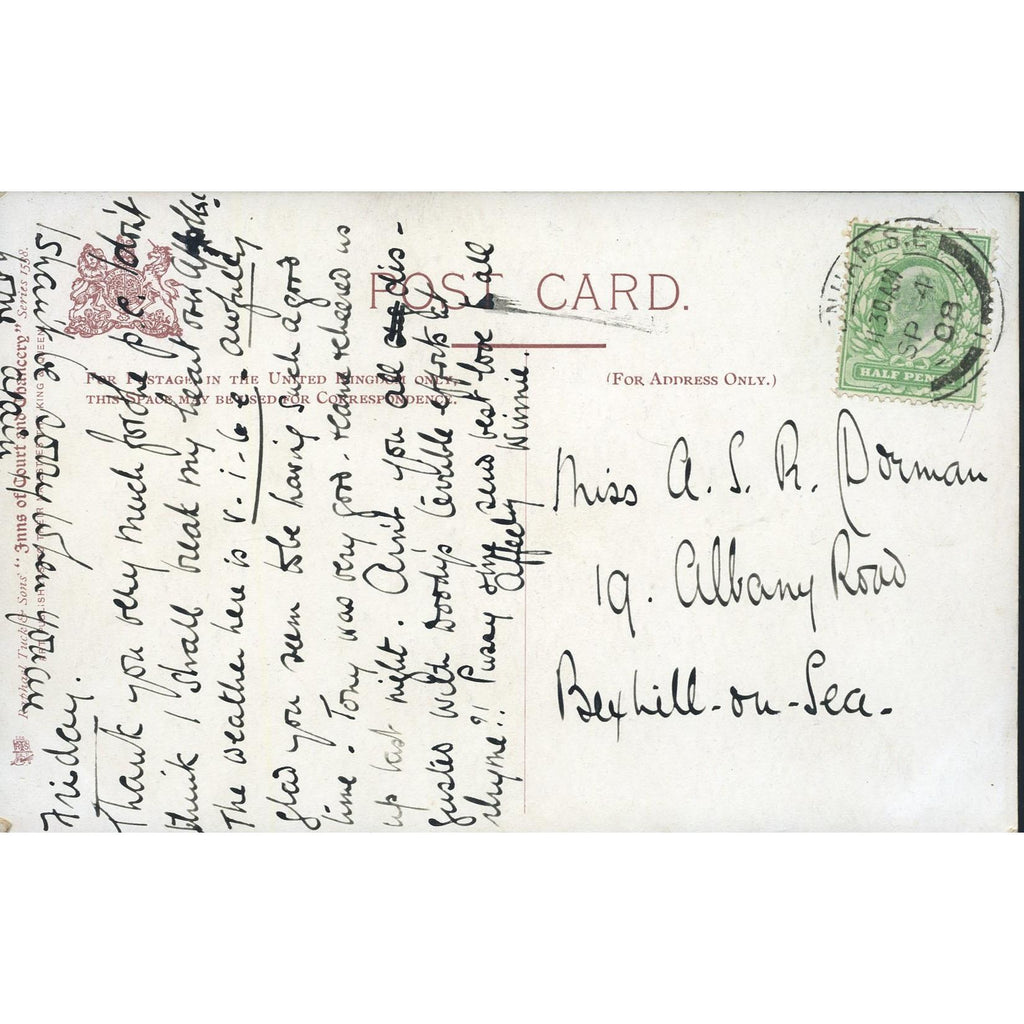 POST CARD.
FOR POSTAGE IN THE UNITED KINGDOM ONLY,
THIS SPACE MAY BE USED FOR CORRESPONDENCE.
(FOR ADDRESS ONLY.)
Raphael Tuck & Sons' "Inns of Court and Chancery" Series 1548.
HALF PENNY
SP 4
08
Miss A. S. R. Dorman
19. Albany Road
Bexhill-on-Sea.
Friday.
Thank you very much for the p.c. I don't
think I shall break my heart on
The weather here is v-i-l-e - awfully
glad you seem to be having such a good
time. Tony was very good - came & cheered us
up last night. Ain't you all dis-
gusted with Woody's terrible efforts at
rhyme?! Pussy & me send best love to all
Affectly Winnie.
I shall be
again